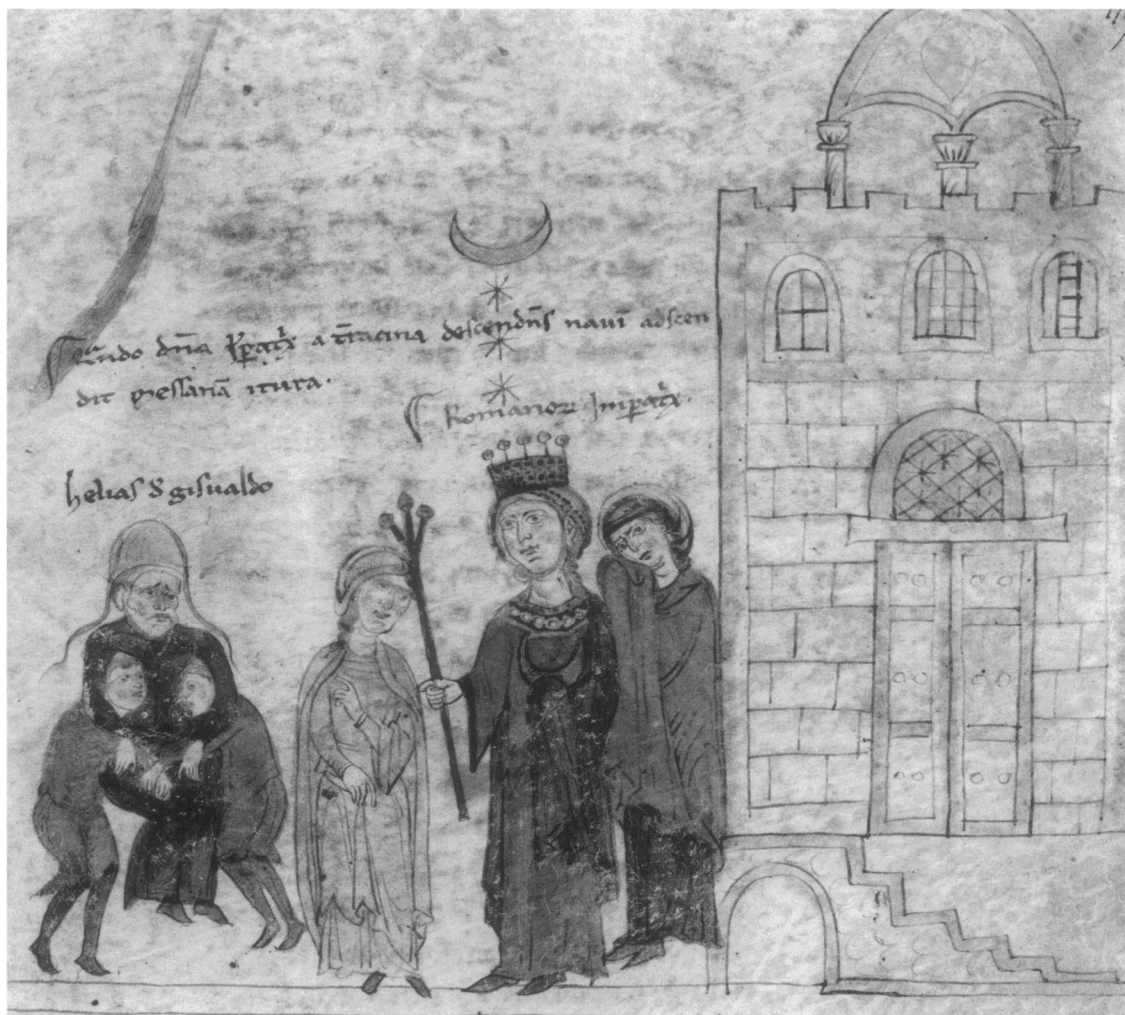 Quando dn̄a Īpatᵢx a t̄racina descendēs navī adscen
dit messanā itura.
Romanoꝝ Impatᵢx.
helias d̄ gisualdo